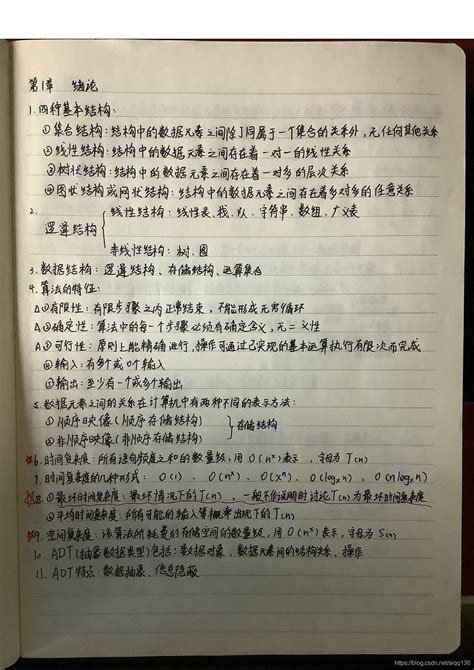 第1章 绪论
1. 四种基本结构:
①集合结构:结构中的数据元素之间除了同属于一个集合的关系外,无任何其他关系
②线性结构:结构中的数据元素之间存在着一对一的线性关系
③树状结构:结构中的数据元素之间存在着一对多的层次关系
④图状结构或网状结构:结构中的数据元素之间存在着多对多的任意关系
2. 逻辑结构
线性结构:线性表、栈、队、字符串、数组、广义表
非线性结构:树、图
3. 数据结构:逻辑结构、存储结构、运算集合
4. 算法的特征:
△①有限性:有限步骤之内正常结束,不能形成无穷循环
△②确定性:算法中的每一个步骤必须有确定含义,无二义性
△③可行性:原则上能精确进行,操作可通过已实现的基本运算执行有限次而完成
④输入:有多个或0个输入
⑤输出:至少有一个或多个输出
5. 数据元素之间的关系在计算机中有两种不同的表示方法:
①顺序映像(顺序存储结构)
②非顺序映像(非顺序存储结构)
存储结构
☆6. 时间复杂度:所有语句频度之和的数量级,用O(nˣ)表示,字母为T(n)
7. 时间复杂度的几种形式:O(1)、O(nˣ)、O(xⁿ)、O(logₓn)、O(nlogₓn)
☆8. ①最坏时间复杂度:最坏情况下的T(n),一般不作说明时讨论T(n)为最坏时间复杂度
②平均时间复杂度:所有可能的输入等概率出现下的T(n)
☆9. 空间复杂度:该算法所耗费的存储空间的数量级,用O(nˣ)表示,字母为S(n)
10. ADT(抽象数据类型)包括:数据对象、数据元素间的结构关系、操作
11. ADT特点:数据抽象、信息隐蔽
https://blog.csdn.net/aiqq136